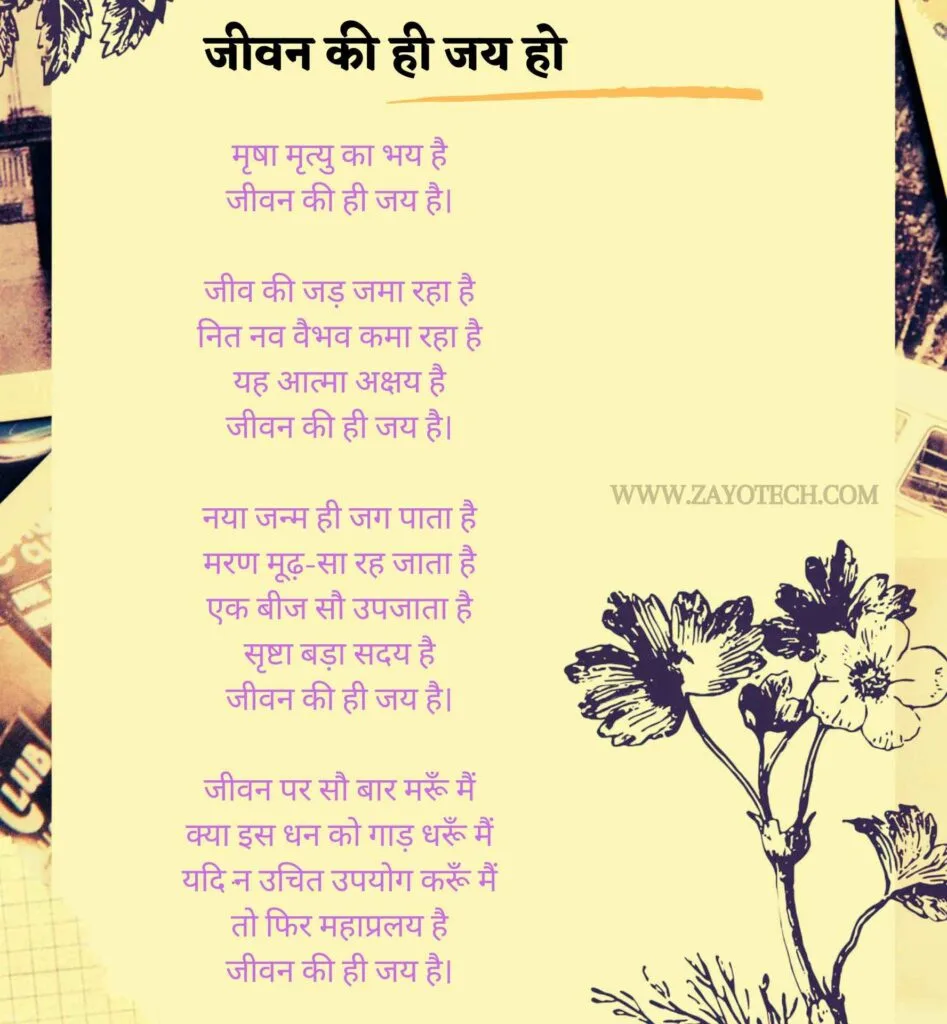 जीवन की ही जय हो
मृषा मृत्यु का भय है
जीवन की ही जय है।
जीव की जड़ जमा रहा है
नित नव वैभव कमा रहा है
यह आत्मा अक्षय है
जीवन की ही जय है।
WWW.ZAYOTECH.COM
नया जन्म ही जग पाता है
मरण मूढ़-सा रह जाता है
एक बीज सौ उपजाता है
सृष्टा बड़ा सदय है
जीवन की ही जय है।
CLUB
जीवन पर सौ बार मरूँ मैं
क्या इस धन को गाड़ धरूँ मैं
यदि न उचित उपयोग करूँ मैं
तो फिर महाप्रलय है
जीवन की ही जय है।